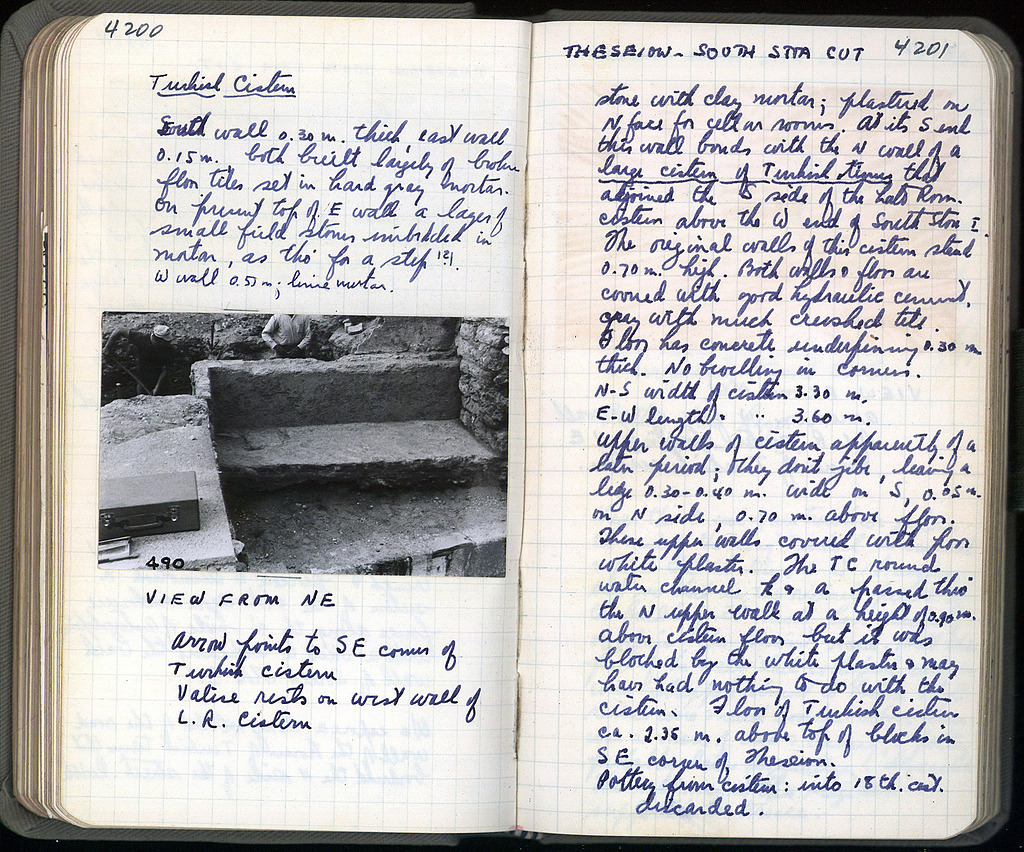 4200
Turkish Cistern
South wall 0.30 m. thick, east wall
0.15 m., both built largely of broken
floor tiles set in hard gray mortar.
On present top of E wall a layer of
small field stones imbedded in
mortar, as tho' for a step (?).
W wall 0.57 m; lime mortar.
490
VIEW FROM NE
Arrow points to SE corner of
Turkish cistern
Valise rests on west wall of
L.R. Cistern
THESEION - SOUTH STOA CUT 4201
stone with clay mortar; plastered on
N face for cellar rooms. At its S end
this wall bonds with the N wall of a
large cistern of Turkish times that
adjoined the S side of the late Rom.
cistern above the W end of South Stoa I.
The original walls of this cistern stand
0.70 m. high. Both walls & floor are
covered with good hydraulic cement,
gray with much crushed tile.
Floor has concrete underpinning 0.30 m
thick. No bevelling in corners.
N-S width of cistern 3.30 m.
E-W length " " 3.60 m.
Upper walls of cistern apparently of a
later period; they don't jibe, leaving a
ledge 0.30-0.40 m. wide on S, 0.05 m.
on N side, 0.70 m. above floor.
These upper walls covered with poor
white plaster. The TC round
water channel a passed thro
the N upper wall at a height of 0.90 m.
above cistern floor but it was
blocked by the white plaster & may
have had nothing to do with the
cistern. Floor of Turkish cistern
ca. 2.35 m. above top of blocks in
SE corner of Theseion.
Pottery from cistern: into 18th. cent.
discarded.